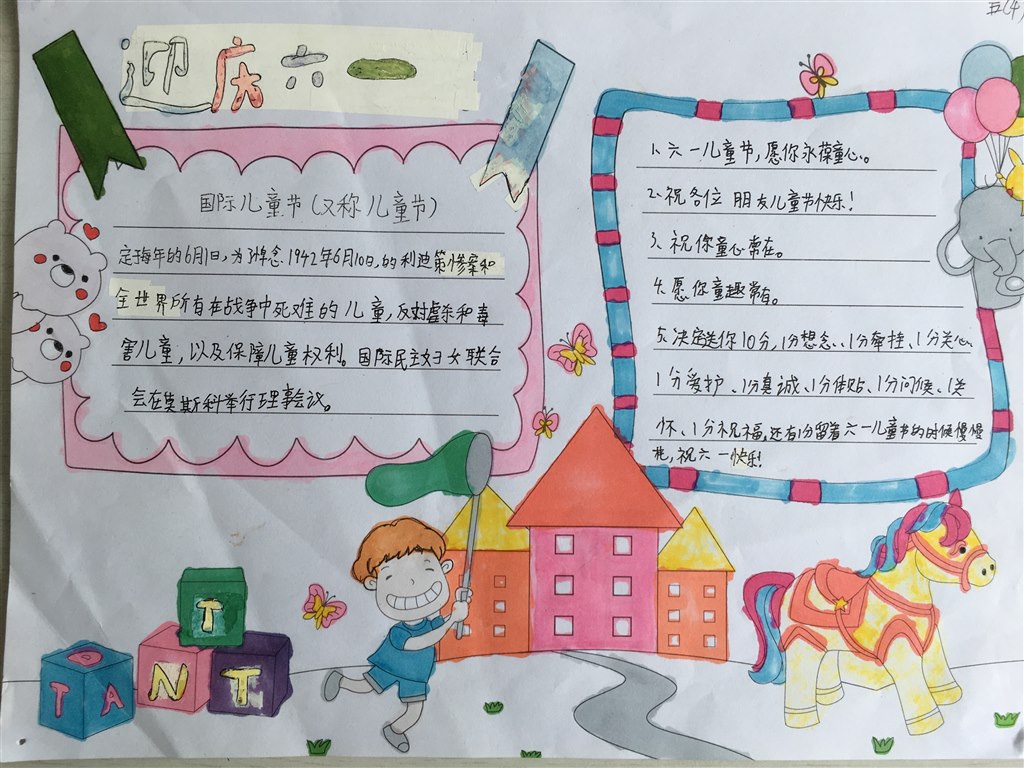 五(4)
迎庆六一
国际儿童节(又称儿童节)
定每年的6月1日,为了悼念1942年6月10日,的利迪策惨案和
全世界所有在战争中死难的儿童,反对虐杀和毒
害儿童,以及保障儿童权利。国际民主妇女联合
会在莫斯科举行理事会议。
1、六一儿童节,愿你永葆童心。
2、祝各位朋友儿童节快乐!
3、祝你童心常在。
4、愿你童趣常有。
5、决定送你10分,1分想念、1分牵挂、1分关心、
1分爱护、1分真诚、1分体贴、1分问候、1关
怀、1分祝福,还有1分留着六一儿童节的时候慢慢
花,祝六一快乐!
T
T A
N
T